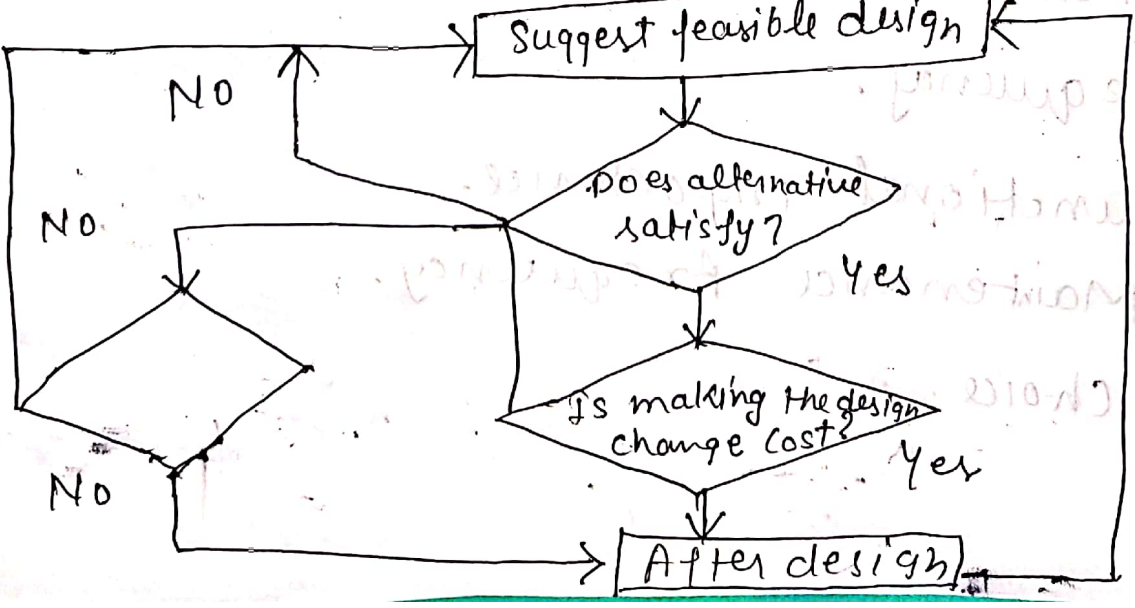 Suggest feasible design
NO
Does alternative
satisfy?
NO
Yes
Is making the design
change cost?
Yes
NO
After design